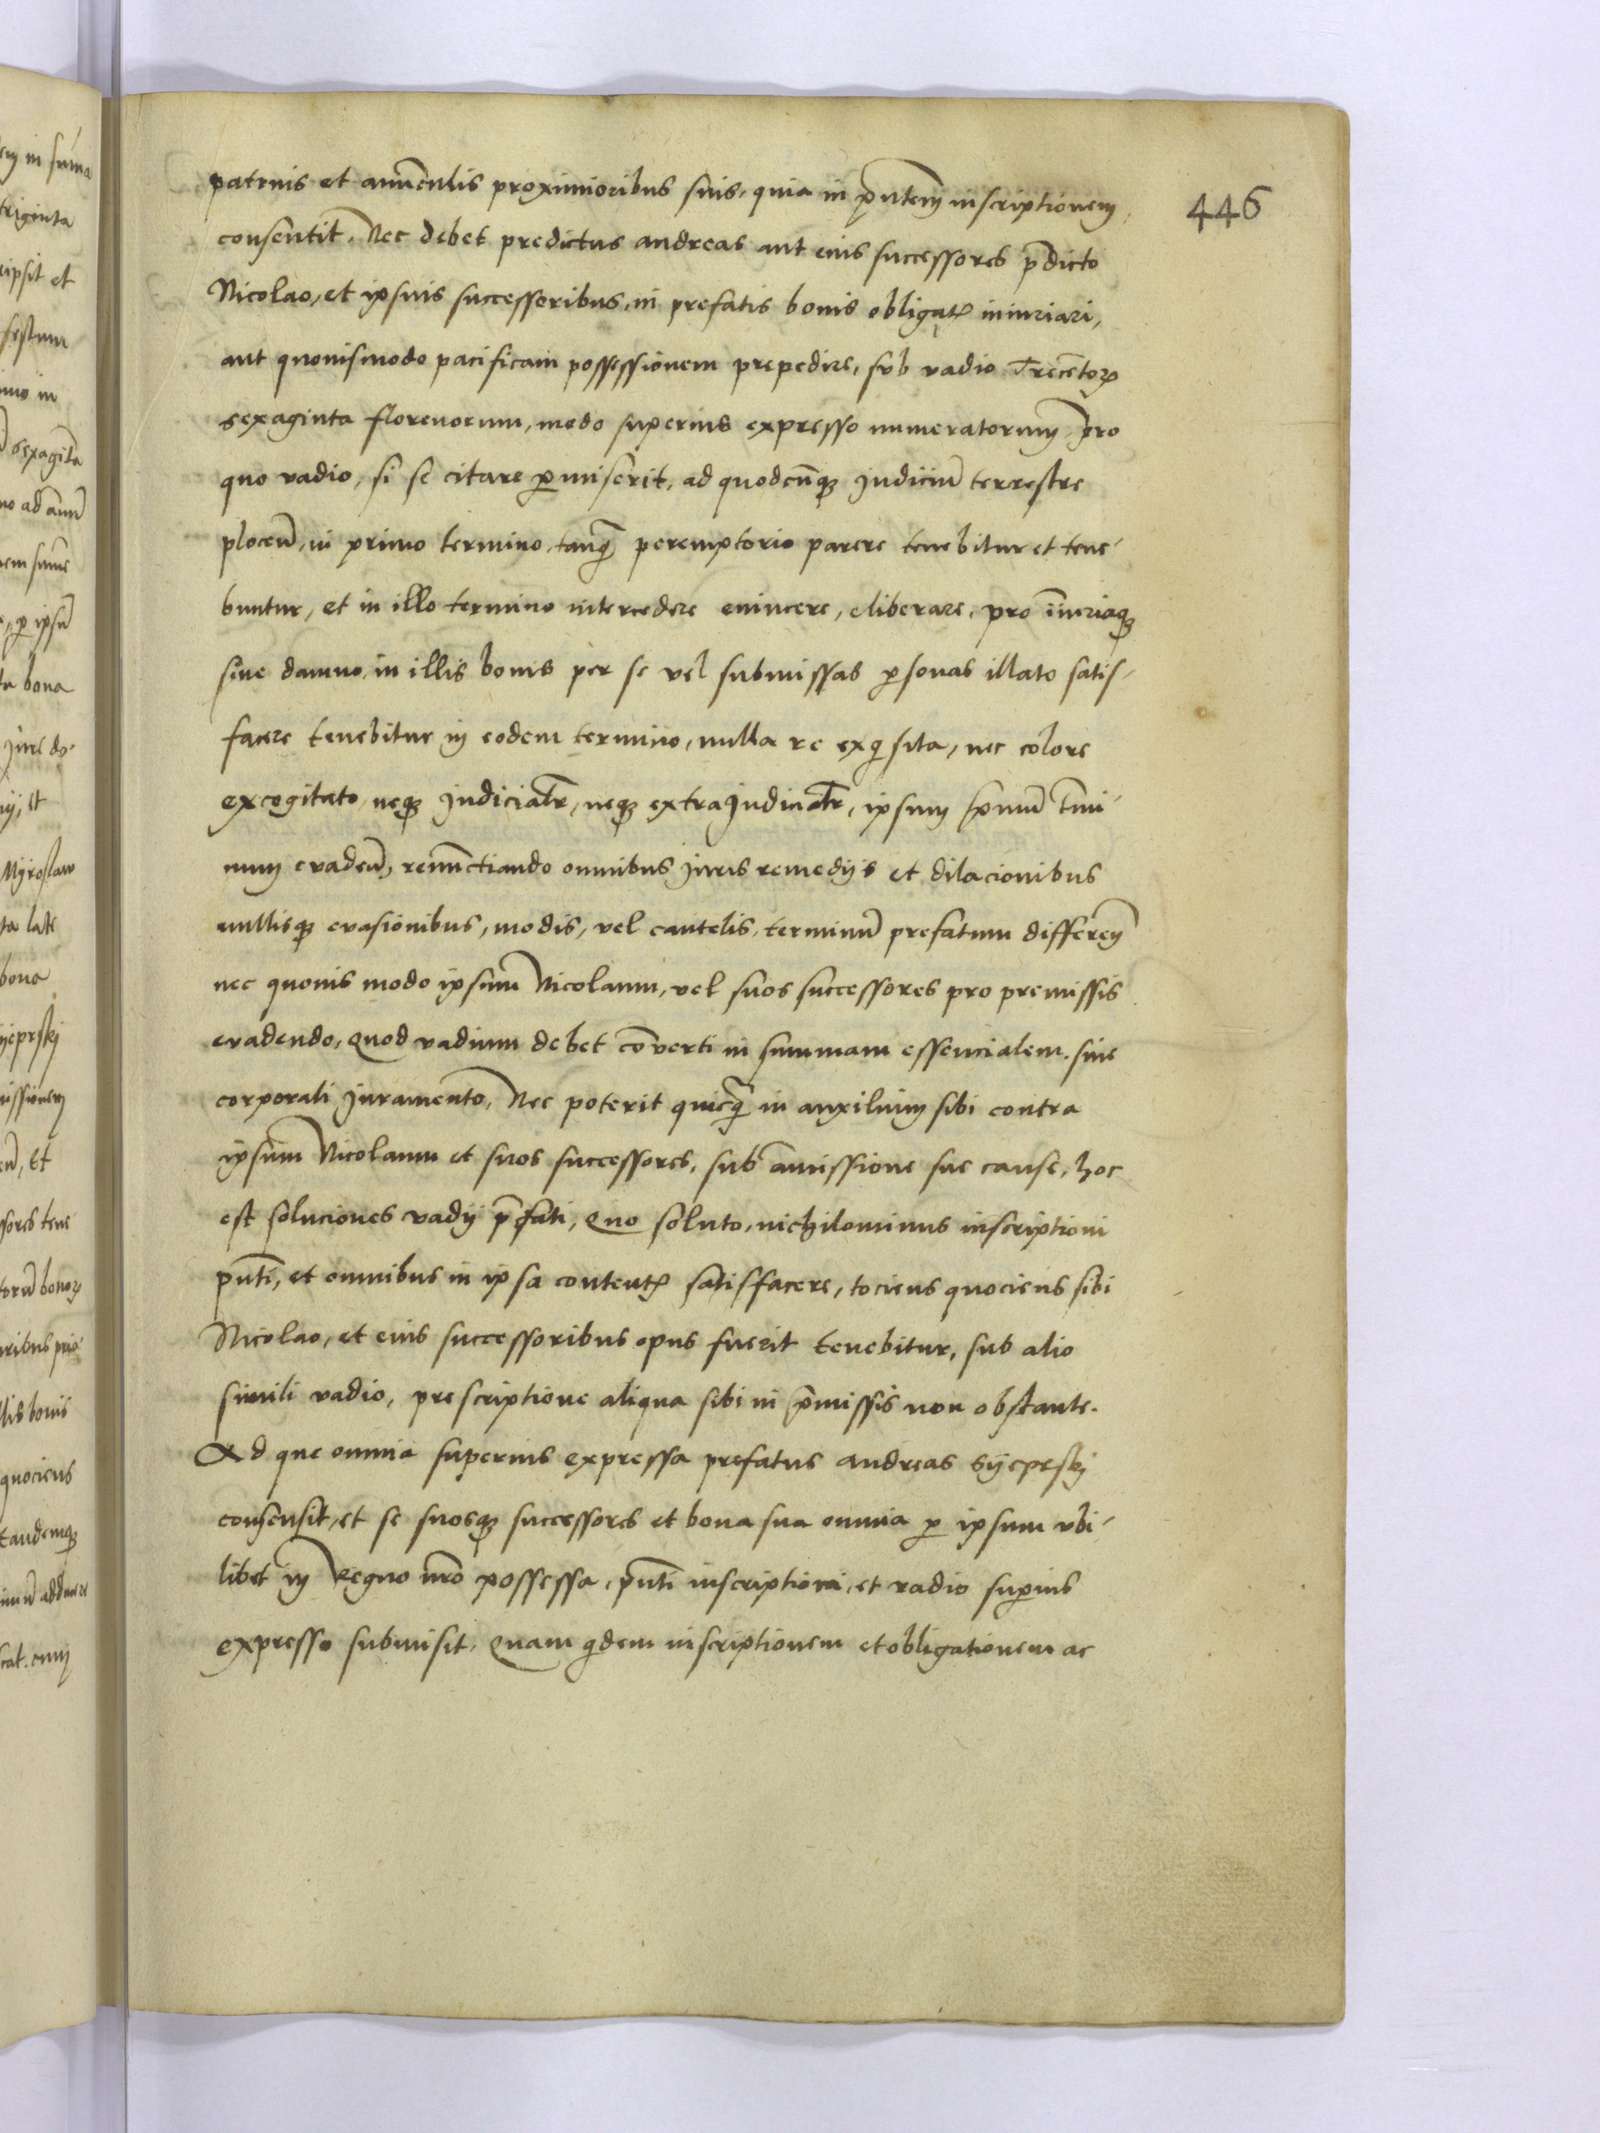 446
patruis et auu̅culis proximioribus suis, quia in p̅ntem inscriptionem
consentit. Nec debet predictus andreas aut eius successores p̅dicto
Nicolao, et ipsius successoribus, in prefatis bonis obligat[is] iniuriari,
aut quouismodo pacificam possessionem prepedire, sub vadio Trece̅toꝝ
sexaginta florenorum, modo superius expresso numeratorum, Pro
quo vadio, si se citare ꝑmiserit, ad quodcu̅qꝫ Judiciu̅ terrestre
plocen̅, in primo termino, tanq̅ peremptorio parere tenebitur et tene-
buntur, et in illo termino intercedere euincere, eliberare, pro iniuriaqꝫ
siue damno, in illis bonis per se vel submissas ꝑsonas illato satis-
facere tenebitur in eodem termino, nulla re exq̇sita, nec colore
excogitato, neqꝫ Judicialr̅, neqꝫ extraJudicialr̅, ipsum p̅mu̅ t̅mi-
num euaden̅, renu̅ctiando omnibus Juris remedijs et dilacionibus
nullisqꝫ euasionibus, modis, vel cautelis, terminu̅ prefatum differen̅
nec quouis modo ipsum Nicolaum, vel suos successores pro premissis
euadendo, Quod vadium debet co̅uerti in summam essencialem, sine
corporali Juramento, Nec poterit quicq̅ in auxilium sibi contra
ipsum Nicolaum et suos successores, sub amissione sue cause, hoc
est soluciones vadij p̅fati, Quo soluto, nichilominus inscriptioni
p̅nti, et omnibus in ipsa content[is] satisfacere, tociens quociens sibi
Nicolao, et eius successoribus opus fuerit tenebitur, sub alio
simili vadio, prescriptione aliqua sibi in p̅missis non obstante.
Ad que omnia superius expressa prefatus andreas Syeprskj
consensit, et se suosqꝫ successores et bona sua omnia ꝑ ipsum vbi-
libet in Regno nr̅o possessa, p̅nti inscriptioni, et vadio suꝑius
expresso submisit, Quam q̇dem inscriptionem et obligationem ac